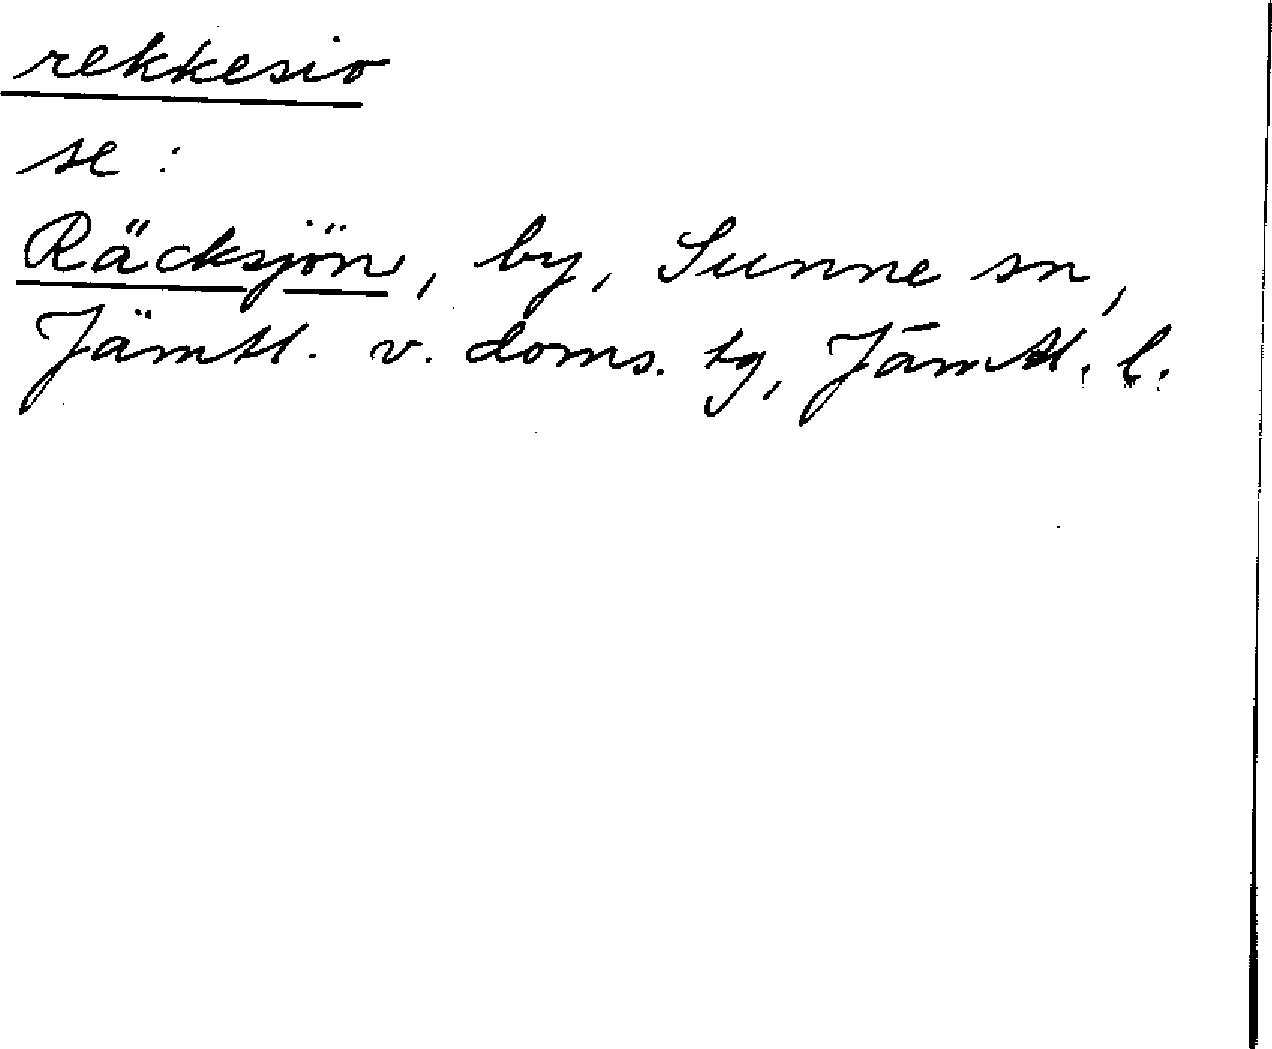 rekkesio
se:
Räcksjön, by, Sunne sn,
Jämtl. v. doms. tg, Jämtl. l.